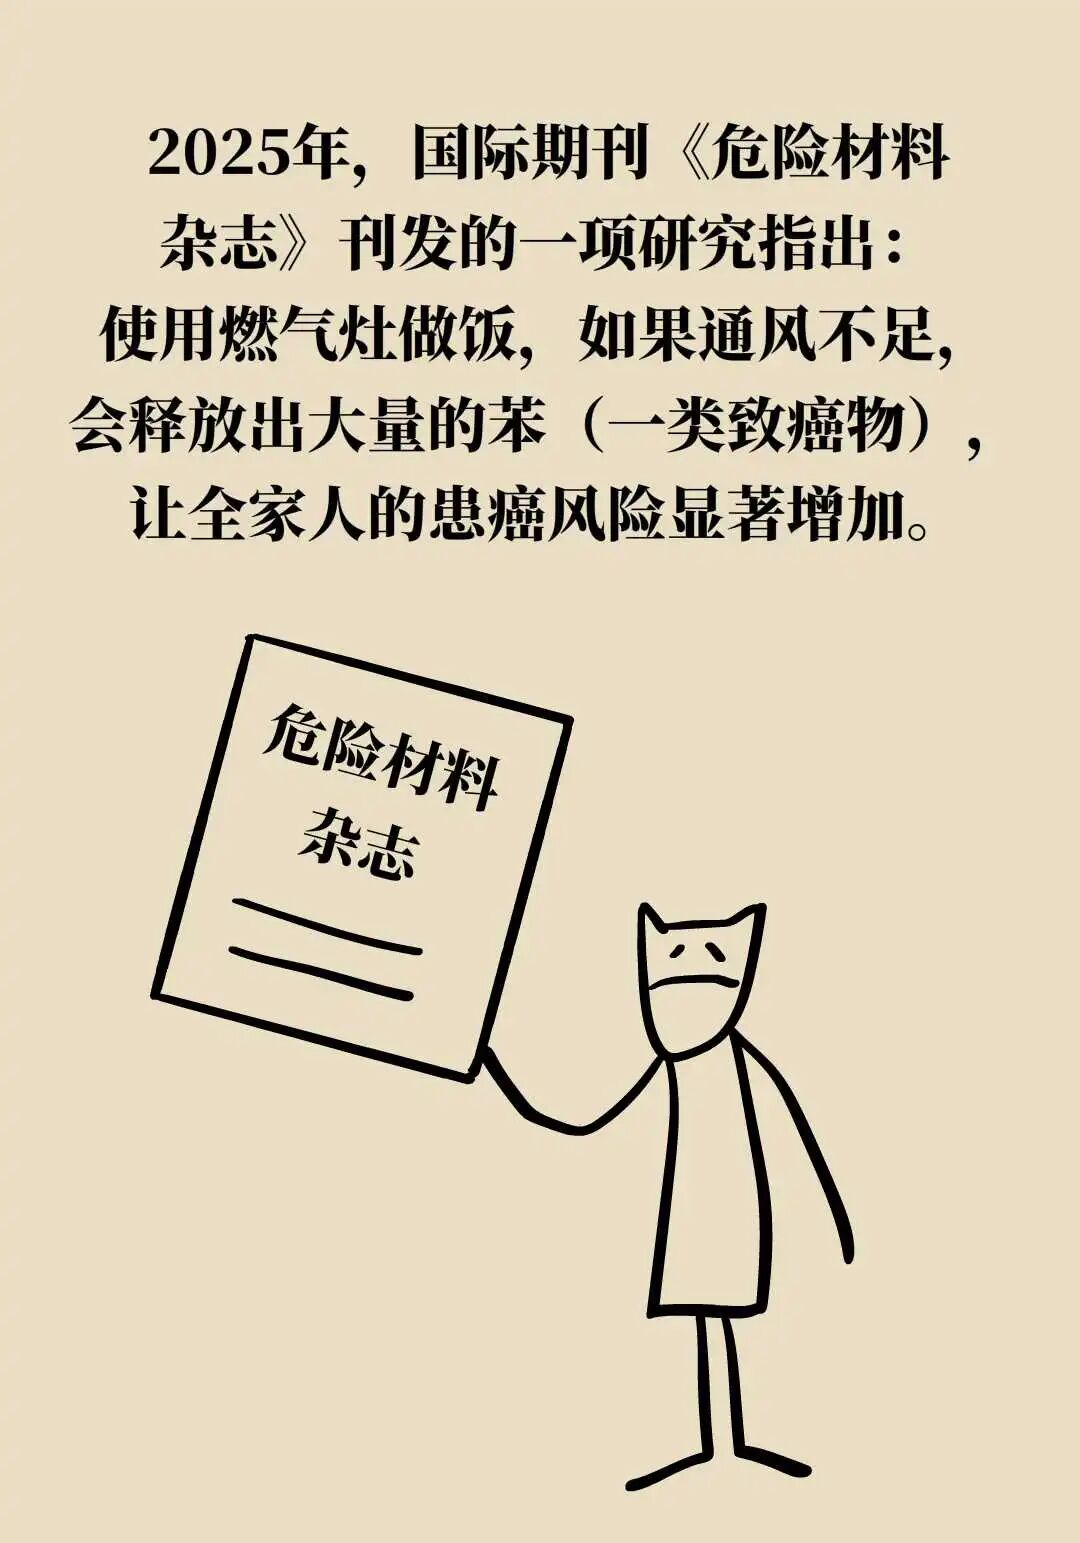 2025年，国际期刊《危险材料
杂志》刊发的一项研究指出：
使用燃气灶做饭，如果通风不足，
会释放出大量的苯（一类致癌物），
让全家人的患癌风险显著增加。
危险材料
杂志